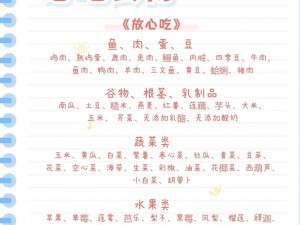 《放心吃》
鱼、肉、蛋、豆
鸡肉、熟鸡蛋、鹿肉、兔肉、鳗鱼、内脏、四季豆、牛肉、
鱼肉、鸭肉、羊肉、三文鱼、黄豆、蛤蜊、猪肉
谷物、根茎、乳制品
南瓜、土豆、糙米、燕麦、红薯、莲藕、芋头、大米、
玉米、芹菜、无添加乳酪、无添加酸奶
蔬菜类
玉米、黄瓜、白菜、紫薯、卷心菜、仙瓜、青菜、豆芽、
花菜、空心菜、海带、生菜、彩椒、油菜、花椰菜、西葫芦、
小白菜、胡萝卜
水果类
苹果、草莓、莲雾、芭乐、梨子、黑莓、凤梨、榴莲、